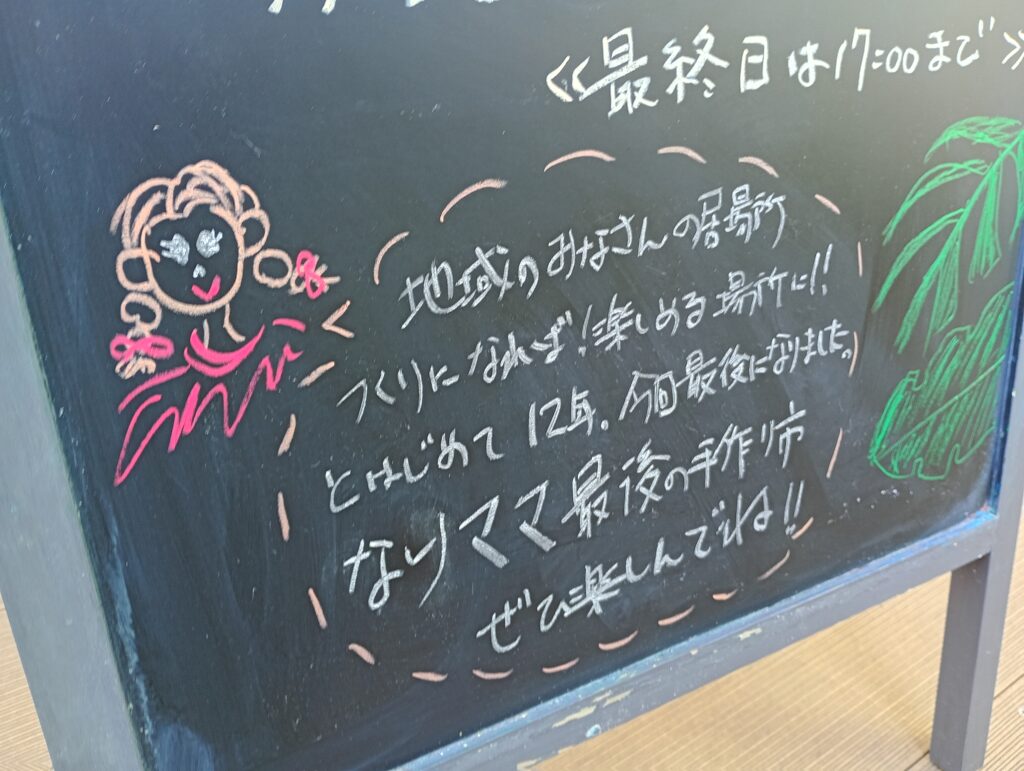 ≪最終日は17:00まで≫
地域のみなさんの居場所
つくりになれば!楽しめる場所に!!
とはじめて12年。今回最後になりました。
なりママ最後の手作り市
ぜひ楽しんでね!!